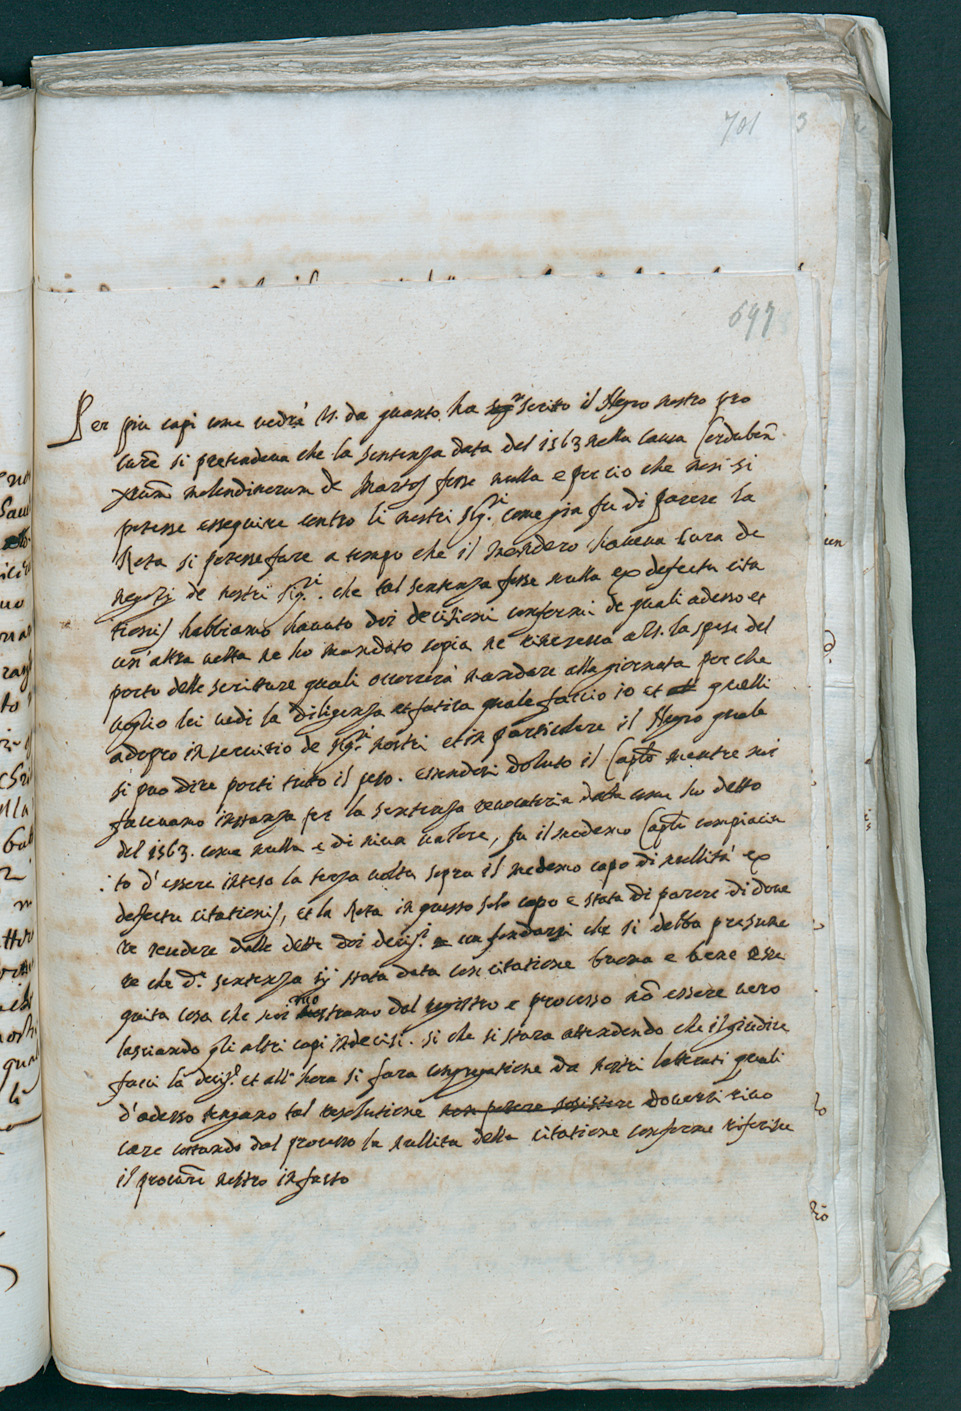 701
3
697
Per piu capi come vedrà V.S. da quanto ha scritto il Negro nostro pro
curẽ si pretendeva che la sentenza data del 1563 nella causa Cordubeñ.
molendinorum de Martos fosse nulla e perciò che non si
potesse esseguire contro li nostri sig.ri come già fu di parere la
Rota si potesse fare a tempo che il haveva cura de
negozij de nostri sig.ri che tal sentenza fosse nulla ex defectu cita
tionis habbiamo havuto doi decisioni conformi de quali adesso et
un'altra volta ne ho mandato copia ne rincresca a V.S. la spesa del
porto delle scritture quali occorrerà mandare alla giornata perche
voglio lei vedi la diligenza et fatica quale faccio io et quelli
adopro in servitio de sig.ri nostri et in particolare il Negro quale
si puo dire porti tutto il peso. Essendosi doluto il Cap.lo mentre noi
facevamo instanza per la sentenza revocatoria data come ho detto
del 1563. come nulla e di niun valore, fu il medemo Cap.lo compiaciu
to d'essere inteso la terza volta sopra il medemo capo di nullità ex
defectu citationis, et la Rota in questo solo capo e stata di parere di dove
re recedere dalle dette doi decis.i con fondarsi che si debba presume
re che d.a sentenza sij stata data con citatione buona e bene ese
guita cosa che noi mostramo dal registro e processo nõ essere vero
lasciando gli altri capi indecisi. si che si stara attendendo che il giudice
facci la decis.e et all'hora si fara congregatione da nostri letterati quali
d'adesso tengano tal resolutione non potere sosistere doversi rivo
care costando dal processo la nullita della citatione conforme riferisce
il procurẽ nostro in fatto